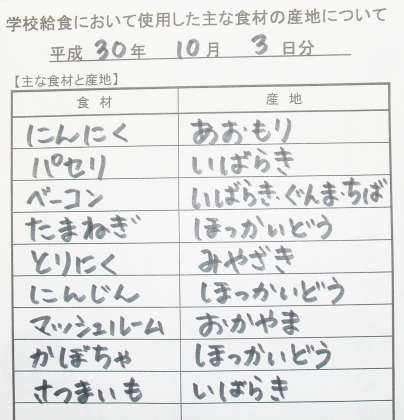 学校給食において使用した主な食材の産地について
平成 30 年 10 月 3 日分
【主な食材と産地】
食材 産地
にんにく あおもり
パセリ いばらき
ベーコン いばらき・ぐんま・ちば
たまねぎ ほっかいどう
とりにく みやざき
にんじん ほっかいどう
マッシュルーム おかやま
かぼちゃ ほっかいどう
さつまいも いばらき